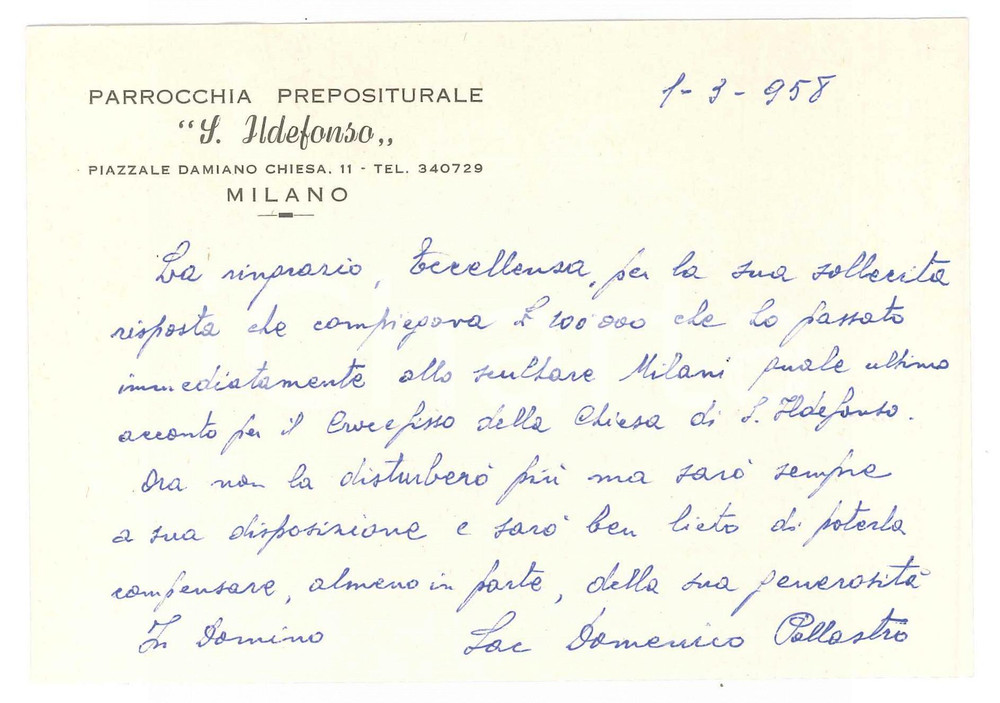 PARROCCHIA PREPOSITURALE
“S. Ildefonso„
PIAZZALE DAMIANO CHIESA, 11 - TEL. 340729
MILANO
1-3-958
La ringrazio, Eccellenza, per la sua sollecita
risposta che compiegava £ 100 000 che ho passato
immediatamente allo scultore Milani quale ultimo
acconto per il Crocefisso della Chiesa di S. Ildefonso.
Ora non la disturberò più ma sarò sempre
a sua disposizione e sarò ben lieto di poterla
compensare, almeno in parte, della sua generosità
In Domino
Sac Domenico Pollastro